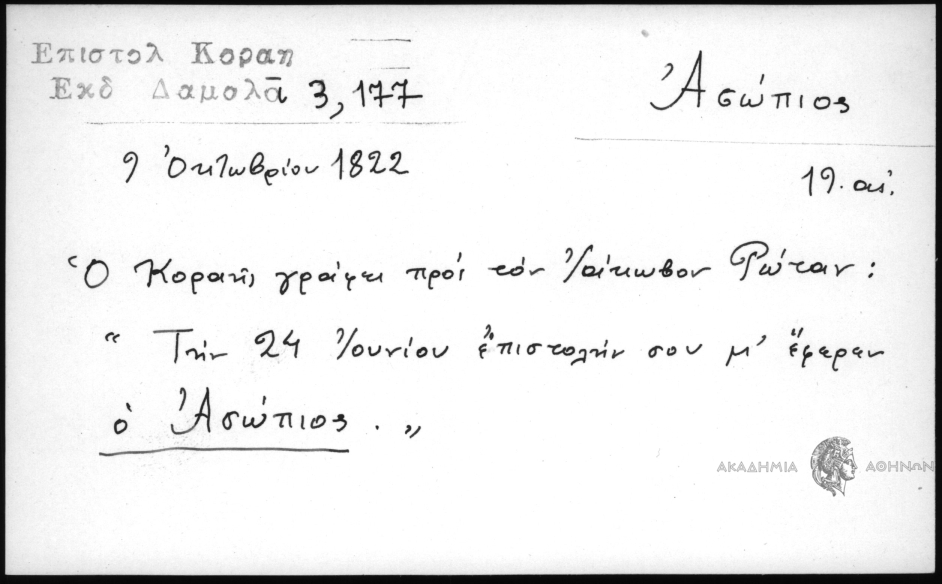 Επιστολ Κοραη
Εκδ Δαμολᾶ 3, 177
Ἀσώπιος
9 Ὀκτωβρίου 1822
19. αἰ.
Ὁ Κοραῆς γράφει πρὸς τὸν Ἰάκωβον Ρώταν:
“ Τὴν 24 Ἰουνίου ἐπιστολήν σου μ' ἔφερεν
ὁ Ἀσώπιος. „
ΑΚΑΔΗΜΙΑ ΑΘΗΝΩΝ